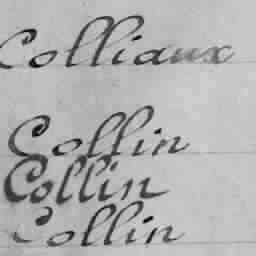 Colliaux
Collin
Collin
Collin